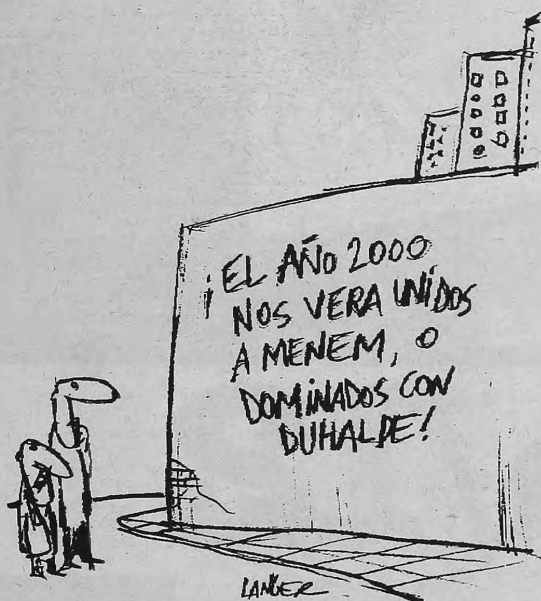 ¡EL AÑO 2000
NOS VERA UNIDOS
A MENEM, O
DOMINADOS CON
DUHALDE!
LANGER